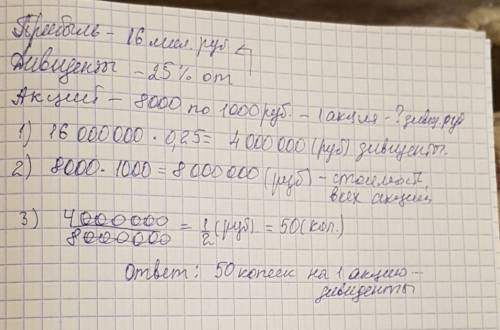 Прибыль - 16 мил. руб
Дивиденты - 25% от
Акций - 8000 по 1000 руб. - 1 акция - ? дивид. руб
1) 16 000 000 · 0,25 = 4 000 000 (руб) дивиденты.
2) 8000 · 1000 = 8 000 000 (руб) - стоимость
всех акций
3) 4000000/8000000 = 1/2 (руб) = 50 (коп.)
Ответ: 50 копеек на 1 акцию -
дивиденты